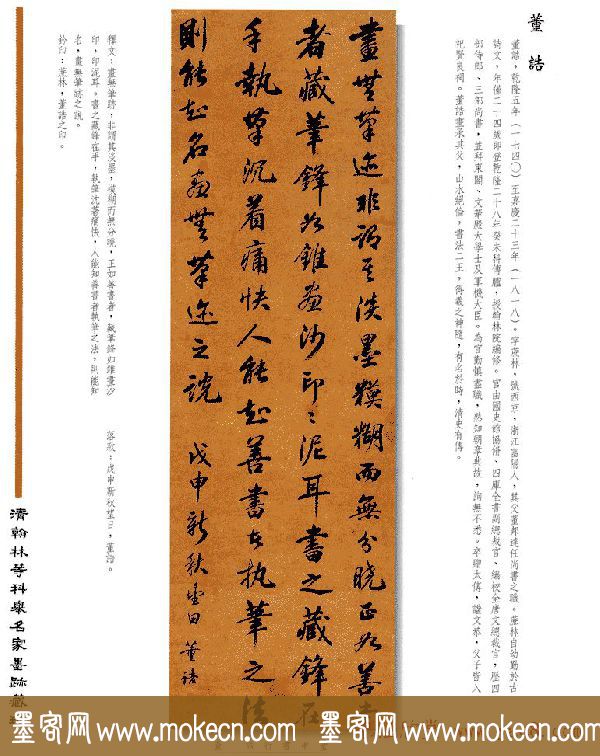 董誥
董誥，乾隆五年（一七四〇）至嘉慶二十三年（一八一八）。字蔗林，號西京，浙江富陽人，其父董邦達任尚書之職。蔗林自幼勤於古
詩文，年僅二十四歲即登乾隆二十八年癸未科傳臚，授翰林院編修。官由國史館協修、四庫全書副總裁官、編校全唐文總裁官，歷四
部侍郎、三部尚書，並拜東閣、文華殿大學士及軍機大臣。為官勤慎盡職，熟知朝章典故，詢無不悉。卒贈太傅，謚文恭，父子皆入
祀賢良祠。董誥畫承其父，山水絕倫，書法二王，得羲之神髓，有名於時，清史有傳。
畫無筆迹非謂其淡墨糢糊而無分曉正如善書
者藏筆鋒如錐畫沙印印泥耳書之藏鋒在
手執筆沉着痛快人能知善書者執筆之法
則能知名畫無筆迹之說
戊申新秋望日 董誥
釋文：畫無筆跡，非謂其淡墨，模糊而無分曉，正如善書者，藏筆鋒如錐畫沙
印，印泥耳。書之藏鋒在乎，執筆沈著痛快，人能知善書者執筆之法，則能知
名，畫無筆跡之說。
落款：戊申新秋望日，董誥。
鈐印：蔗林，董誥之印。
清翰林等科舉名家墨跡藏
墨客网 www.mokecn.com 墨客网 www.mokecn.com